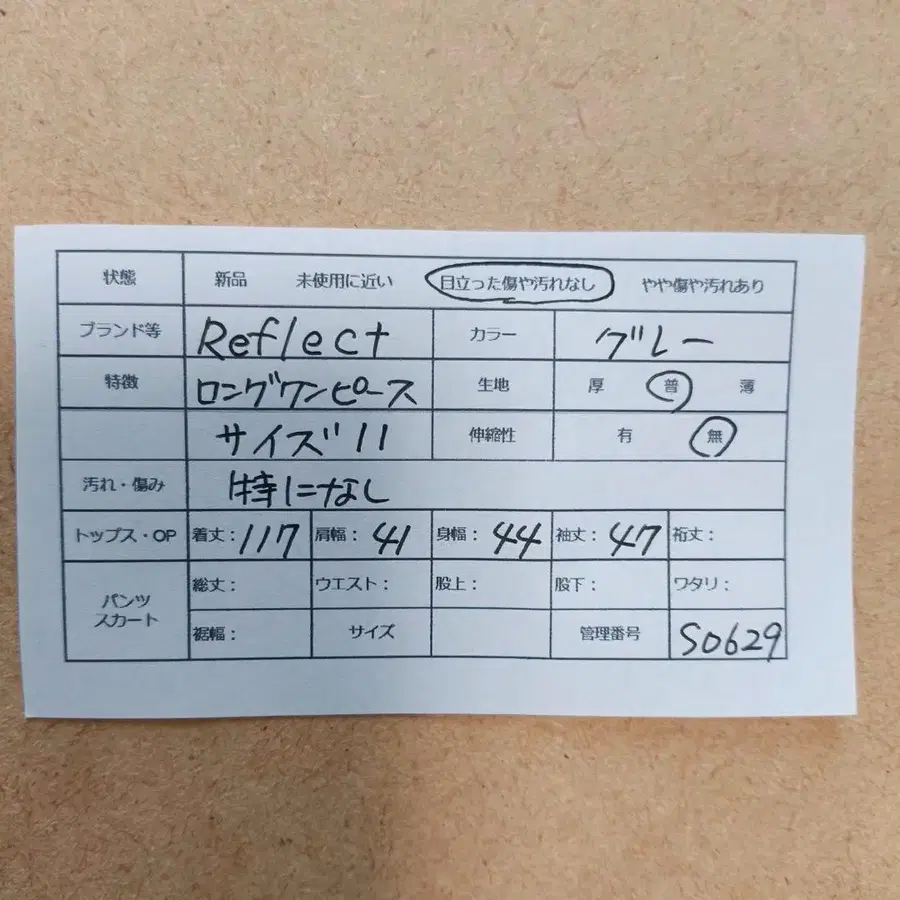 状態 新品 未使用に近い 目立った傷や汚れなし やや傷や汚れあり
ブランド等 Reflect カラー グレー
特徴 ロングワンピース 生地 厚 普 薄
サイズ11 伸縮性 有 無
汚れ・傷み 特になし
トップス・OP 着丈：117 肩幅：41 身幅：44 袖丈：47 裄丈：
パンツ
スカート
総丈： ウエスト： 股上： 股下： ワタリ：
裾幅： サイズ 管理番号 S0629